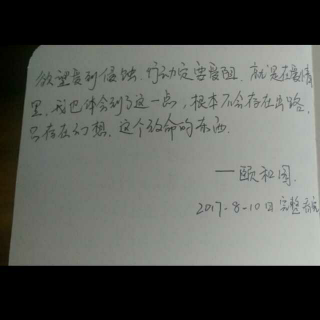 欲望受到侵蚀,行动定会受阻,就是在爱情
里,我已体会到了这一点,根本不会存在出路,
只存在幻想,这个致命的东西.
——颐和园.
2017-8-10日 完整